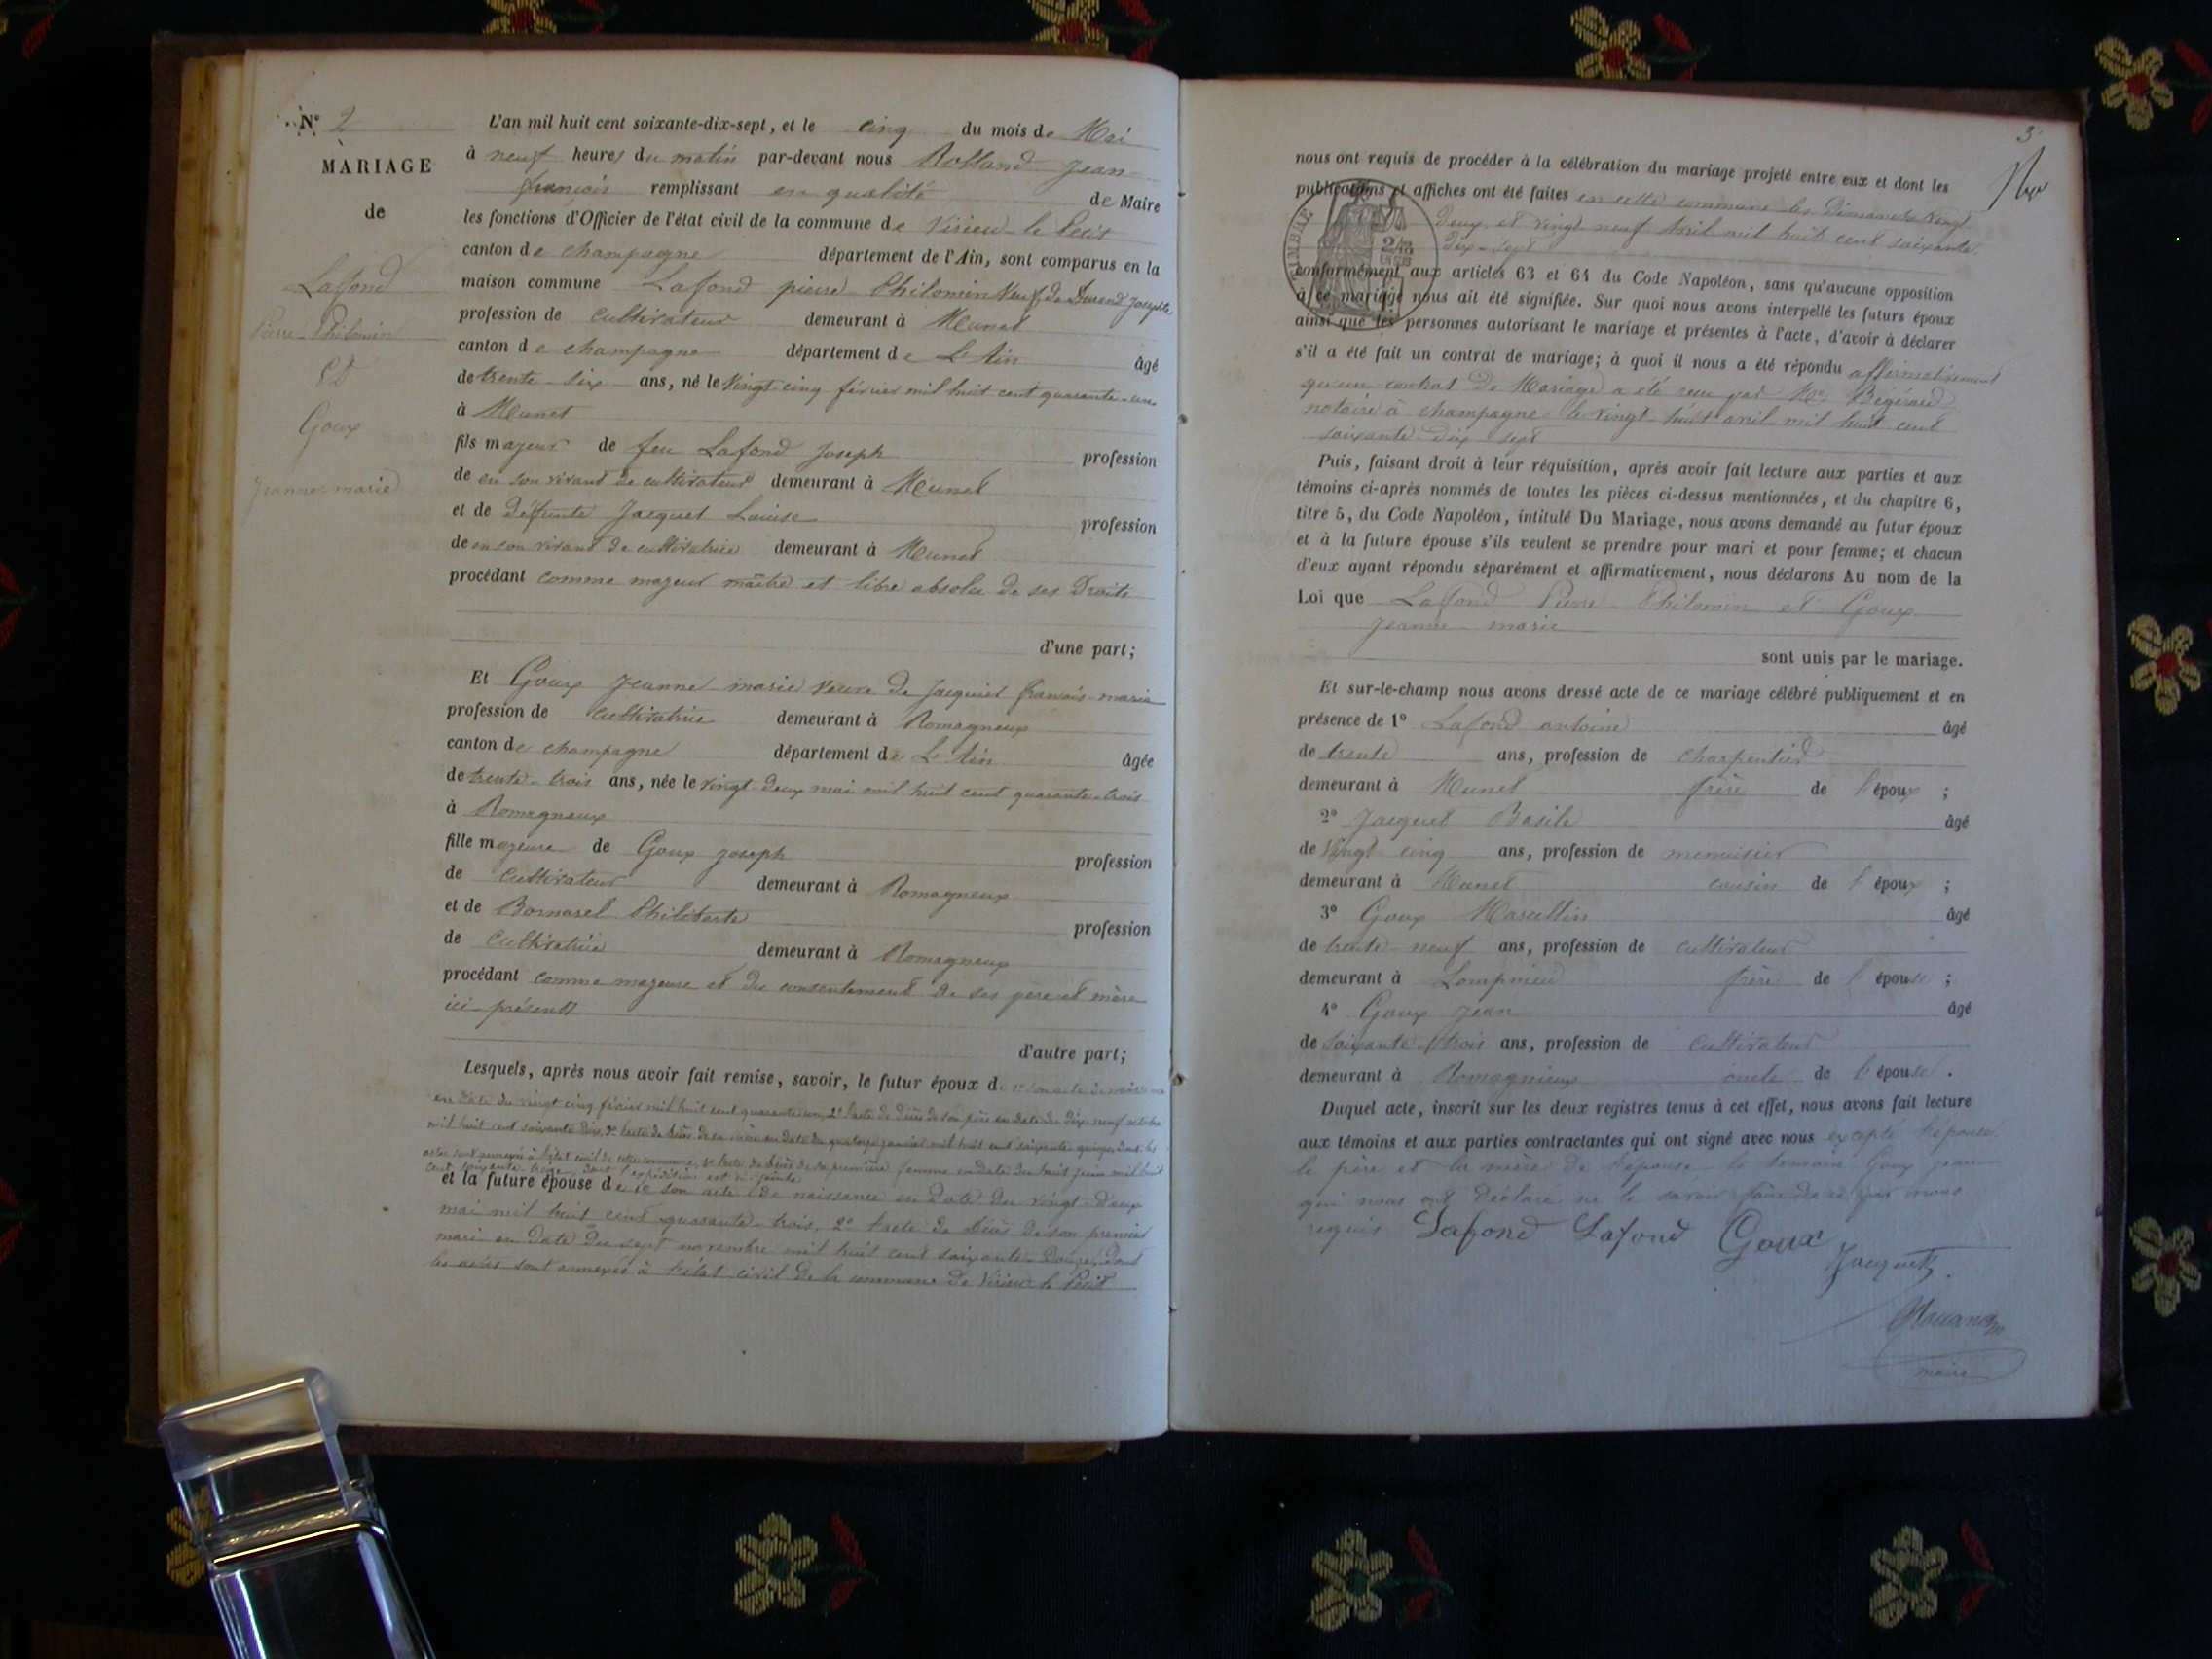 N° 2
MARIAGE
de
Lafond
Pierre-Philomin
Et
Goux
Jeanne marie
L'an mil huit cent soixante-dix-sept, et le cinq du mois de Mai
à neuf heures du matin par-devant nous Rolland Jean-
françois remplissant en qualité de Maire
les fonctions d'Officier de l'état civil de la commune de Virieu-le Petit
canton de champagne département de l'Ain, sont comparus en la
maison commune Lafond pierre-Philomin Veuf de Durend Josephte
profession de cultivateur demeurant à Munet
canton de champagne département de L'Ain âgé
de trente-six ans, né le vingt-cinq février mil huit cent quarante-un
à Munet
fils majeur de feu Lafond Joseph profession
de en son vivant de cultivateur demeurant à Munet
et de défunte Jacquet Louise profession
de en son vivant de cultivatrice demeurant à Munet
procédant comme majeur maître et libre absolu de ses Droits
d'une part;
Et Goux Jeanne-marie veuve de Jacquiet françois-marie
profession de cultivatrice demeurant à Romagneux
canton de champagne département de L'Ain âgée
de trente-trois ans, née le vingt-deux mai mil huit cent quarante-trois
à Romagneux
fille majeure de Goux Joseph profession
de cultivateur demeurant à Romagneux
et de Bornarel Philiberte profession
de cultivatrice demeurant à Romagneux
procédant comme majeure et du consentement de ses père et mère
ici présents
d'autre part;
Lesquels, après nous avoir fait remise, savoir, le futur époux de 1° son acte de naissance
en date du vingt cinq février mil huit cent quarante un, 2° l'acte de décès de son père en date du dix-neuf octobre
mil huit cent soixante dix, 3° l'acte de décès de sa mère en date du quatorze janvier mil huit cent soixante quinze dont les
actes sont annexés à l'état civil de cette commune, 4° l'acte de décès de sa première femme en date du huit juin mil huit
cent soixante-treize, dont l'expédition est ci-jointe
et la future épouse de 1° son acte de naissance en date du vingt-deux
mai mil huit cent quarante-trois, 2° l'acte de décès de son premier
mari en date du sept novembre mil huit cent soixante-douze, dont
les actes sont annexés à l'état civil de la commune de Virieu le Petit
3
nous ont requis de procéder à la célébration du mariage projeté entre eux et dont les
publications et affiches ont été faites en cette commune les Dimanches vingt
deux et vingt-neuf Avril mil huit cent soixante
dix-sept
TIMBRE
conformément aux articles 63 et 64 du Code Napoléon, sans qu'aucune opposition
à ce mariage nous ait été signifiée. Sur quoi nous avons interpellé les futurs époux
ainsi que les personnes autorisant le mariage et présentes à l'acte, d'avoir à déclarer
s'il a été fait un contrat de mariage; à quoi il nous a été répondu affirmativement
qu'un contrat de Mariage a été reçu par Me Bégérard
notaire à champagne le vingt-huit avril mil huit cent
soixante-dix-sept
Puis, faisant droit à leur réquisition, après avoir fait lecture aux parties et aux
témoins ci-après nommés de toutes les pièces ci-dessus mentionnées, et du chapitre 6,
titre 5, du Code Napoléon, intitulé Du Mariage, nous avons demandé au futur époux
et à la future épouse s'ils veulent se prendre pour mari et pour femme; et chacun
d'eux ayant répondu séparément et affirmativement, nous déclarons Au nom de la
Loi que Lafond Pierre Philomin et Goux
Jeanne marie
sont unis par le mariage.
Et sur-le-champ nous avons dressé acte de ce mariage célébré publiquement et en
présence de 1° Lafond antoine âgé
de trente ans, profession de charpentier
demeurant à Munet frère de l'époux ;
2° Jacquet Basile âgé
de Vingt cinq ans, profession de menuisier
demeurant à Munet cousin de l'époux ;
3° Goux Marcellin âgé
de trente-neuf ans, profession de cultivateur
demeurant à Lompnieu frère de l'épouse ;
4° Goux Jean âgé
de soixante-trois ans, profession de cultivateur
demeurant à Romagnieux oncle de l'épouse.
Duquel acte, inscrit sur les deux registres tenus à cet effet, nous avons fait lecture
aux témoins et aux parties contractantes qui ont signé avec nous excepté l'épouse
le père et la mère de l'épouse le témoin Goux Jean
qui nous ont déclaré ne le savoir faire de ce par nous
requis Lafond Lafond Goux
Jacquet
maire